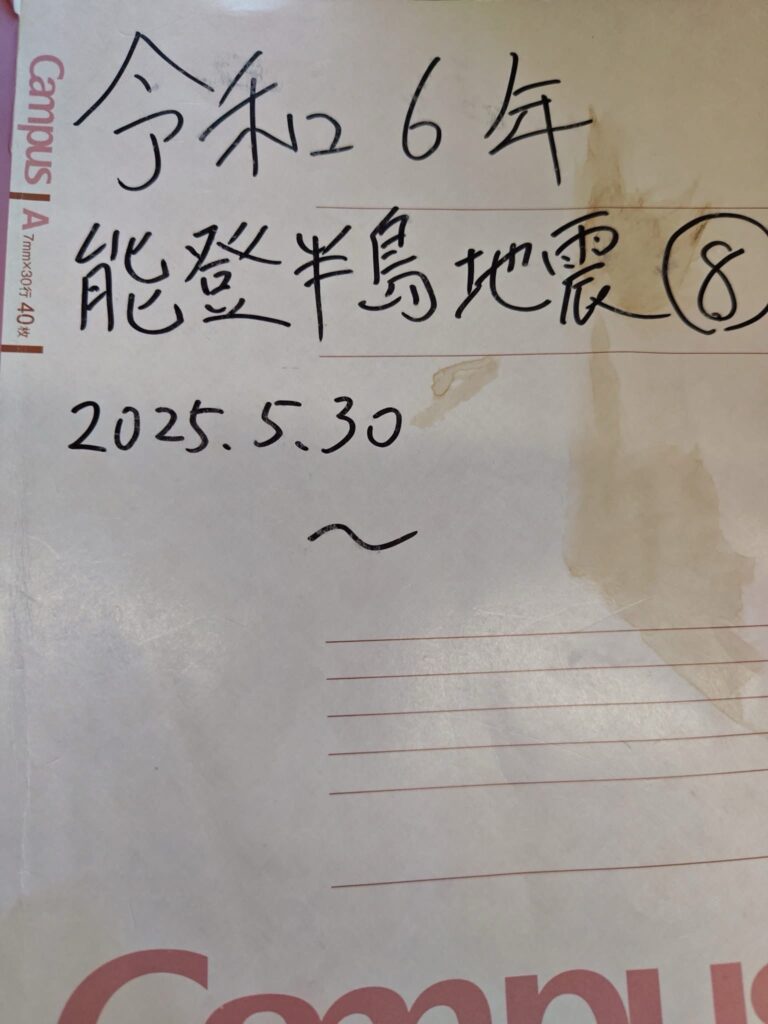 Campus A 7mm×30行 40枚
令和6年
能登半島地震⑧
2025.5.30
～
Campus